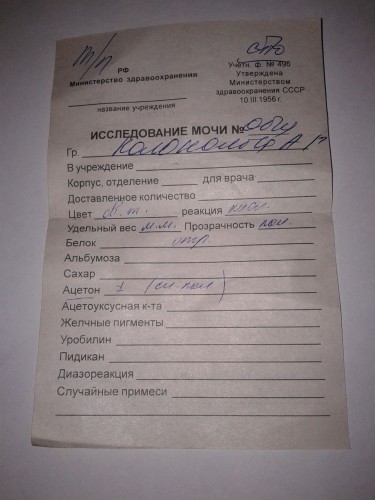 т/п
cito
РФ
Министерство здравоохранения
название учреждения
Учетн. ф. № 496
Утверждена
Министерством
здравоохранения СССР
10.III.1956 г.
ИССЛЕДОВАНИЕ МОЧИ №
Гр.
В учреждение
Корпус, отделение для врача
Доставленное количество
Цвет реакция кисл.
Удельный вес м.м. Прозрачность пол.
Белок отр.
Альбумоза
Сахар
Ацетон 1 (сл. пол)
Ацетоуксусная к-та
Желчные пигменты
Уробилин
Пидикан
Диазореакция
Случайные примеси